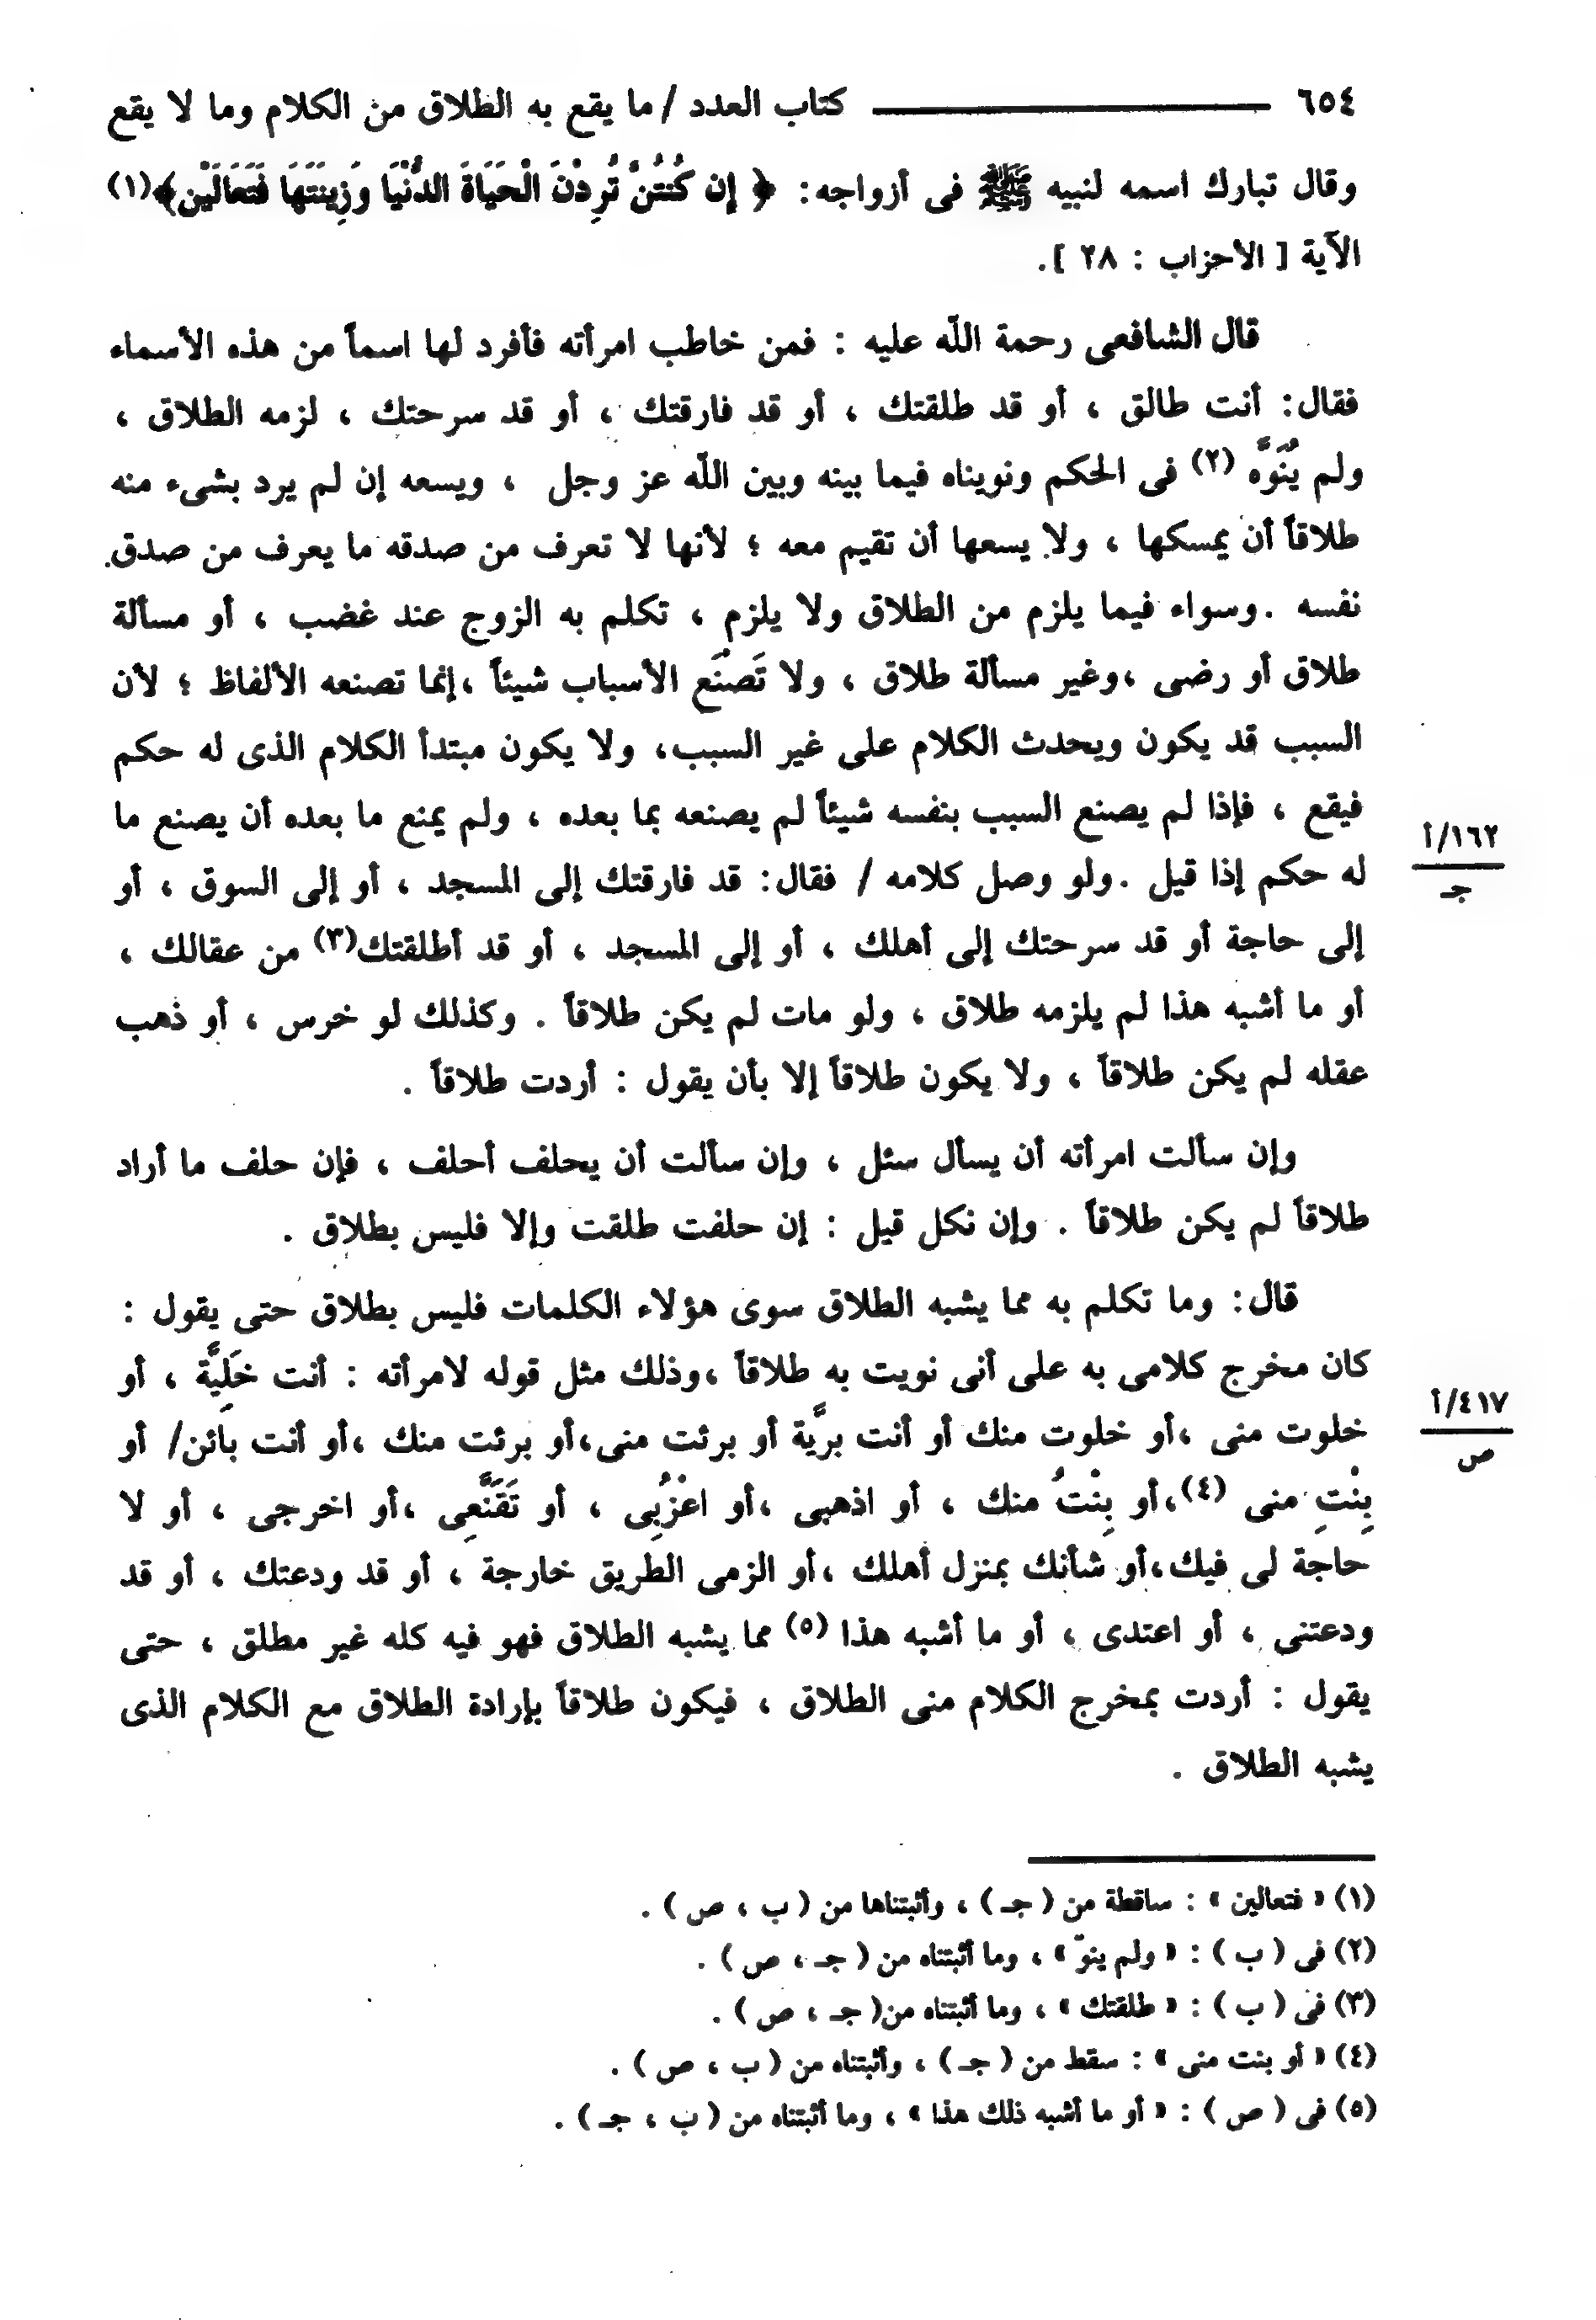 ٦٥٤ ــــــــــــــــ كتاب العدد / ما يقع به الطلاق من الكلام وما لا يقع
وقال تبارك اسمه لنبيه ﷺ فى أزواجه: ﴿ إِن كُنتُنَّ تُرِدْنَ الْحَيَاةَ الدُّنْيَا وَزِينَتَهَا فَتَعَالَيْنَ﴾(١)
الآية [ الأحزاب : ٢٨ ].
قال الشافعى رحمة اللّه عليه : فمن خاطب امرأته فأفرد لها اسماً من هذه الأسماء
فقال: أنت طالق ، أو قد طلقتك ، أو قد فارقتك ، أو قد سرحتك ، لزمه الطلاق ،
ولم يُنَوَّه (٢) فى الحكم ونويناه فيما بينه وبين اللّه عز وجل ، ويسعه إن لم يرد بشىء منه
طلاقاً أن يمسكها ، ولا يسعها أن تقيم معه ؛ لأنها لا تعرف من صدقه ما يعرف من صدق
نفسه . وسواء فيما يلزم من الطلاق ولا يلزم ، تكلم به الزوج عند غضب ، أو مسألة
طلاق أو رضى ، وغير مسألة طلاق ، ولا تَصْنَع الأسباب شيئاً ، إنما تصنعه الألفاظ ؛ لأن
السبب قد يكون ويحدث الكلام على غير السبب، ولا يكون مبتدأ الكلام الذى له حكم
فيقع ، فإذا لم يصنع السبب بنفسه شيئاً لم يصنعه بما بعده ، ولم يمنع ما بعده أن يصنع ما
١٦٢/أ
جـ
له حكم إذا قيل . ولو وصل كلامه / فقال: قد فارقتك إلى المسجد ، أو إلى السوق ، أو
إلى حاجة أو قد سرحتك إلى أهلك ، أو إلى المسجد ، أو قد أطلقتك(٣) من عقالك ،
أو ما أشبه هذا لم يلزمه طلاق ، ولو مات لم يكن طلاقاً . وكذلك لو خرس ، أو ذهب
عقله لم يكن طلاقاً ، ولا يكون طلاقاً إلا بأن يقول : أردت طلاقاً .
وإن سألت امرأته أن يسأل سئل ، وإن سألت أن يحلف أحلف ، فإن حلف ما أراد
طلاقاً لم يكن طلاقاً . وإن نكل قيل : إن حلفت طلقت وإلا فليس بطلاق .
قال: وما تكلم به مما يشبه الطلاق سوى هؤلاء الكلمات فليس بطلاق حتى يقول :
كان مخرج كلامى به على أنى نويت به طلاقاً ، وذلك مثل قوله لامرأته : أنت خَلِيَّة ، أو
٤١٧/أ
ص
خلوت منى ، أو خلوت منك أو أنت بريَّة أو برئت منى، أو برئت منك ، أو أنت بائن/ أو
بِنْتِ منى (٤)، أو بِنْتُ منك ، أو اذهبى ، أو اعْزُبِى ، أو تَقَنَّعِى ، أو اخرجى ، أو لا
حاجة لى فيك، أو شأنك بمنزل أهلك ، أو الزمى الطريق خارجة ، أو قد ودعتك ، أو قد
ودعتنى ، أو اعتدى ، أو ما أشبه هذا (٥) مما يشبه الطلاق فهو فيه كله غير مطلق ، حتى
يقول : أردت بمخرج الكلام منى الطلاق ، فيكون طلاقاً بإرادة الطلاق مع الكلام الذى
يشبه الطلاق .
(١) « فتعالين » : ساقطة من ( جـ ) ، وأثبتناها من ( ب ، ص ) .
(٢) فى ( ب ) : « ولم ينوّ » ، وما أثبتناه من ( جـ ، ص ) .
(٣) فى ( ب ) : « طلقتك » ، وما أثبتناه من( جـ ، ص ) .
(٤) « أو بنت منى » : سقط من ( جـ ) ، وأثبتناه من ( ب ، ص ) .
(٥) فى ( ص ) : « أو ما أشبه ذلك هذا » ، وما أثبتناه من ( ب ، جـ ) .